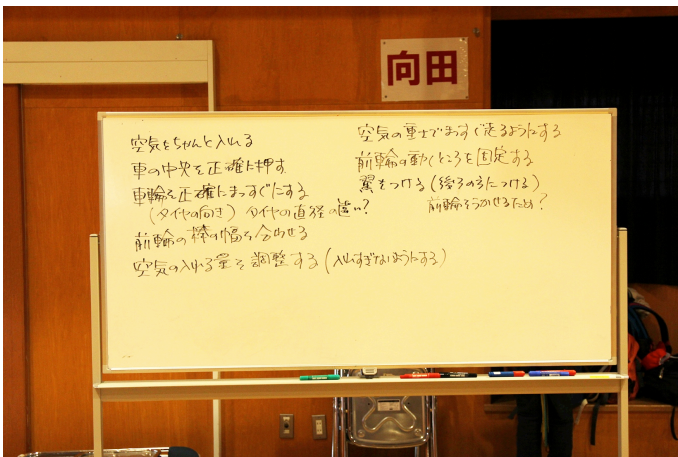 向田
空気をちゃんと入れる
車の中央を正確に押す
車輪を正確にまっすぐにする
(タイヤの向き) タイヤの直径の違い?
前輪の棒の幅を合わせる
空気の入れる量を調整する(入れすぎないようにする)
空気の重士でまっすぐ走るようにする
前輪の動くところを固定する
翼をつける(後ろのほうにつける)
前輪をうかせるため?